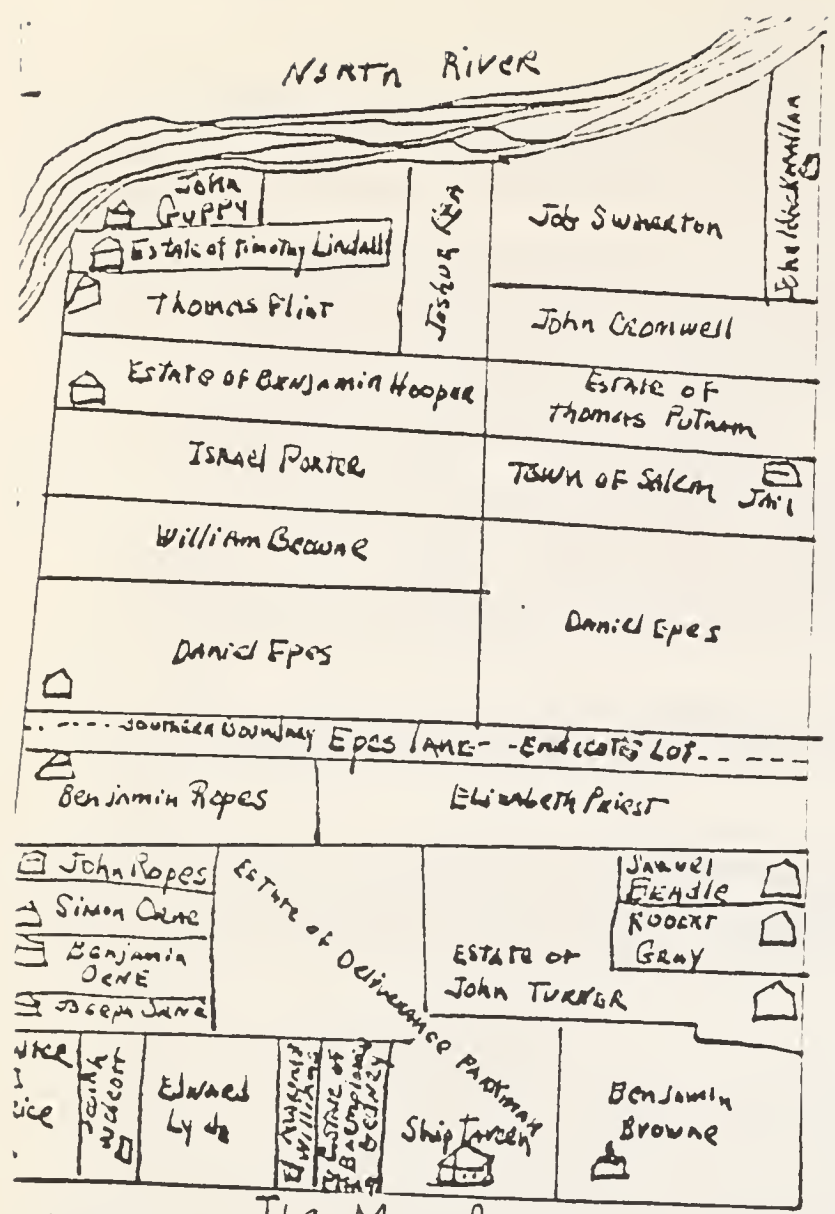 North River
John
Guppy
Estate of Timothy Lindall
Thomas Flint
Joshua Rea
Job Swinerton
John Cromwell
Estate of Benjamin Hooper
Estate of
Thomas Putnam
Israel Porter
Town of Salem
Jail
William Browne
Daniel Epes
Daniel Epes
Southern Boundary Epes Lane - Endicotes Lot
Benjamin Ropes
Elizabeth Priest
John Ropes
Simon Orne
Benjamin
Orne
Joseph
Estate of Deliverance Parkman
Samuel
Beadle
Robert
Gray
Estate of
John Turner
Josiah
Wolcott
Edward
Lyde
Williams
Estate of
Gedney
Ship Tavern
Benjamin
Browne